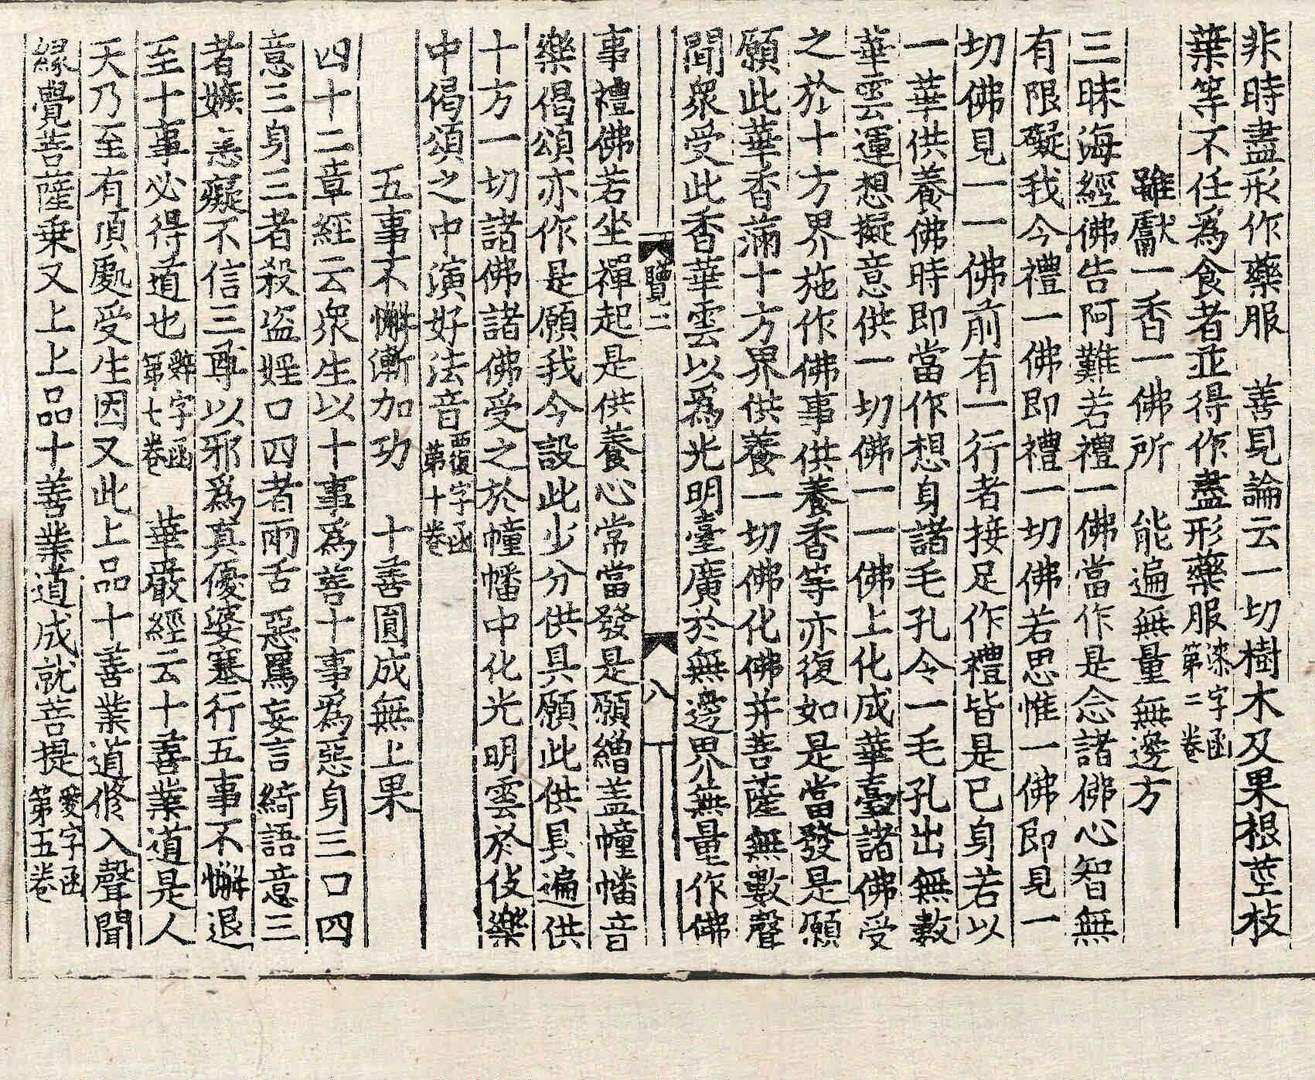 非時盡形作藥服　善見論云一切樹木及果根莖枝
葉等不任爲食者並得作盡形藥服染字函第二卷
雖獻一香一佛所　能遍無量無邊方
三昧海經佛告阿難若禮一佛當作是念諸佛心智無
有限礙我今禮一佛即禮一切佛若思惟一佛即見一
切佛見一一佛前有一行者接足作禮皆是已身若以
一華供養佛時即當作想身諸毛孔令一毛孔出無數
華雲運想擬意供一切佛一一佛上化成華臺諸佛受
之於十方界施作佛事供養香等亦復如是當發是願
願此華香滿十方界供養一切佛化佛并菩薩無數聲
聞衆受此香華雲以爲光明臺廣於無邊界無量作佛
覽二　八
事禮佛若坐禪起是供養心常當發是願繒盖幢幡音
樂偈頌亦作是願我今設此少分供具願此供具遍供
十方一切諸佛諸佛受之於幢幡中化光明雲於伎樂
中偈頌之中演好法音覆字函第十卷
五事不懈漸加功　十善圓成無上果
四十二章經云衆生以十事爲善十事爲惡身三口四
意三身三者殺盜婬口四者兩舌惡罵妄言綺語意三
者嫉恚癡不信三尊以邪爲真優婆塞行五事不懈退
至十事必得道也辭字函第七卷　華嚴經云十善業道是人
天乃至有頂處受生因又此上品十善業道修入聲聞
緣覺菩薩乘又上上品十善業道成就菩提愛字函第五卷